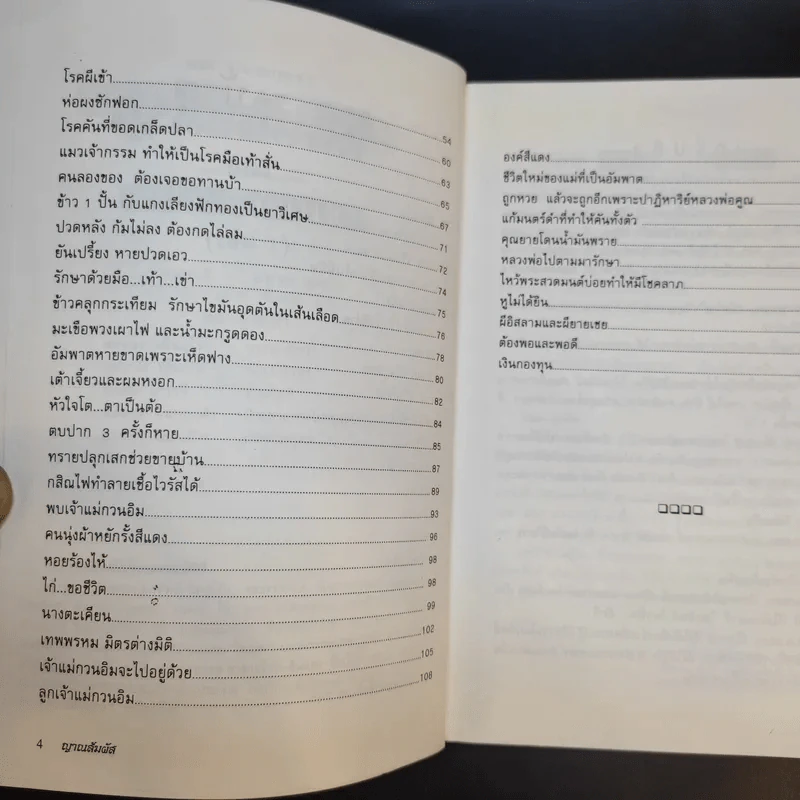 โรคผีเข้า........54
ห่อผงซักฟอก........60
โรคคันที่ขอดเกล็ดปลา........63
แมวเจ้ากรรม ทำให้เป็นโรคมือเท้าสั่น........65
คนลองของ ต้องเจอขอทานบ้า........67
ข้าว 1 ปั้น กับแกงเลียงฟักทองเป็นยาวิเศษ........71
ปวดหลัง ก้มไม่ลง ต้องกดไล่ลม........72
ยันเปรี้ยง หายปวดเอว........74
รักษาด้วยมือ...เท้า...เข่า........75
ข้าวคลุกกระเทียม รักษาไขมันอุดตันในเส้นเลือด........76
มะเขือพวงเผาไฟ และน้ำมะกรูดดอง........78
อัมพาตหายขาดเพราะเห็ดฟาง........80
เต้าเจี้ยวและผมหงอก........82
หัวใจโต...ตาเป็นต้อ........84
ตบปาก 3 ครั้งก็หาย........85
ทรายปลุกเสกช่วยขายบ้าน........87
กสิณไฟทำลายเชื้อไวรัสได้........89
พบเจ้าแม่กวนอิม........93
คนนุ่งผ้าหยักรั้งสีแดง........96
หอยร้องไห้........98
ไก่...ขอชีวิต........98
นางตะเคียน........99
เทพพรหม มิตรต่างมิติ........102
เจ้าแม่กวนอิมจะไปอยู่ด้วย........105
ลูกเจ้าแม่กวนอิม........108
4 ญาณสัมผัส
องค์สีแดง........
ชีวิตใหม่ของแม่ที่เป็นอัมพาต........
ถูกหวย แล้วจะถูกอีกเพราะปาฏิหาริย์หลวงพ่อคูณ
แก้มนตร์ดำที่ทำให้คันทั้งตัว........
คุณยายโดนน้ำมันพราย........
หลวงพ่อไปตามมารักษา........
ไหว้พระสวดมนต์บ่อยทำให้มีโชคลาภ........
หูไม่ได้ยิน........
ผีอิสลามและผียายเชย........
ต้องพอและพอดี........
เงินกองทุน........